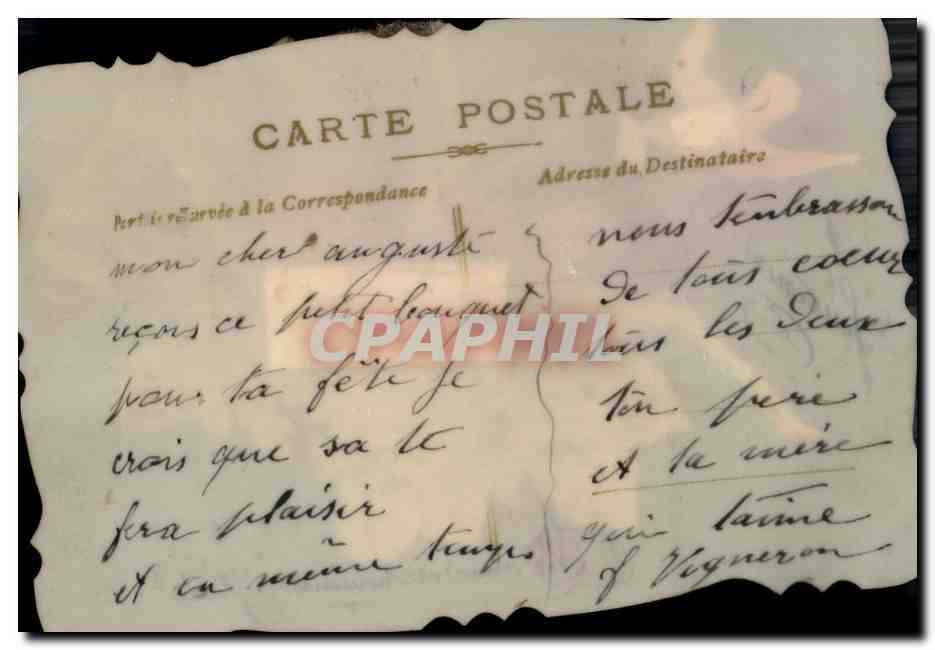 CARTE POSTALE
Partie réservée à la Correspondance
Adresse du Destinataire
mon cher auguste
reçois ce petit bouquet
pour ta fête je
crois que sa te
fera plaisir
et en même temps
nous tenbrasson
de tous coeur
tous les deux
ton père
et ta mère
qui taime
f Vigneron
CPAPHIL